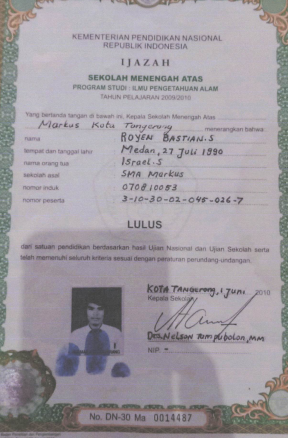 KEMENTERIAN PENDIDIKAN NASIONAL
REPUBLIK INDONESIA
IJAZAH
SEKOLAH MENENGAH ATAS
PROGRAM STUDI : ILMU PENGETAHUAN ALAM
TAHUN PELAJARAN 2009/2010
Yang bertanda tangan di bawah ini, Kepala Sekolah Menengah Atas
Markus Kota Tangerang menerangkan bahwa:
nama ROYEN BASTIAN.S
tempat dan tanggal lahir Medan, 27 Juli 1990
nama orang tua Israel.S
sekolah asal SMA Markus
nomor induk 070810053
nomor peserta 3-10-30-02-045-026-7
LULUS
dari satuan pendidikan berdasarkan hasil Ujian Nasional dan Ujian Sekolah serta
telah memenuhi seluruh kriteria sesuai dengan peraturan perundang-undangan.
KOTA Tangerang, 1 Juni 2010
Kepala Sekolah
Drs. Nelson Tampubolon, MM
NIP -
No. DN-30 Ma 0014487